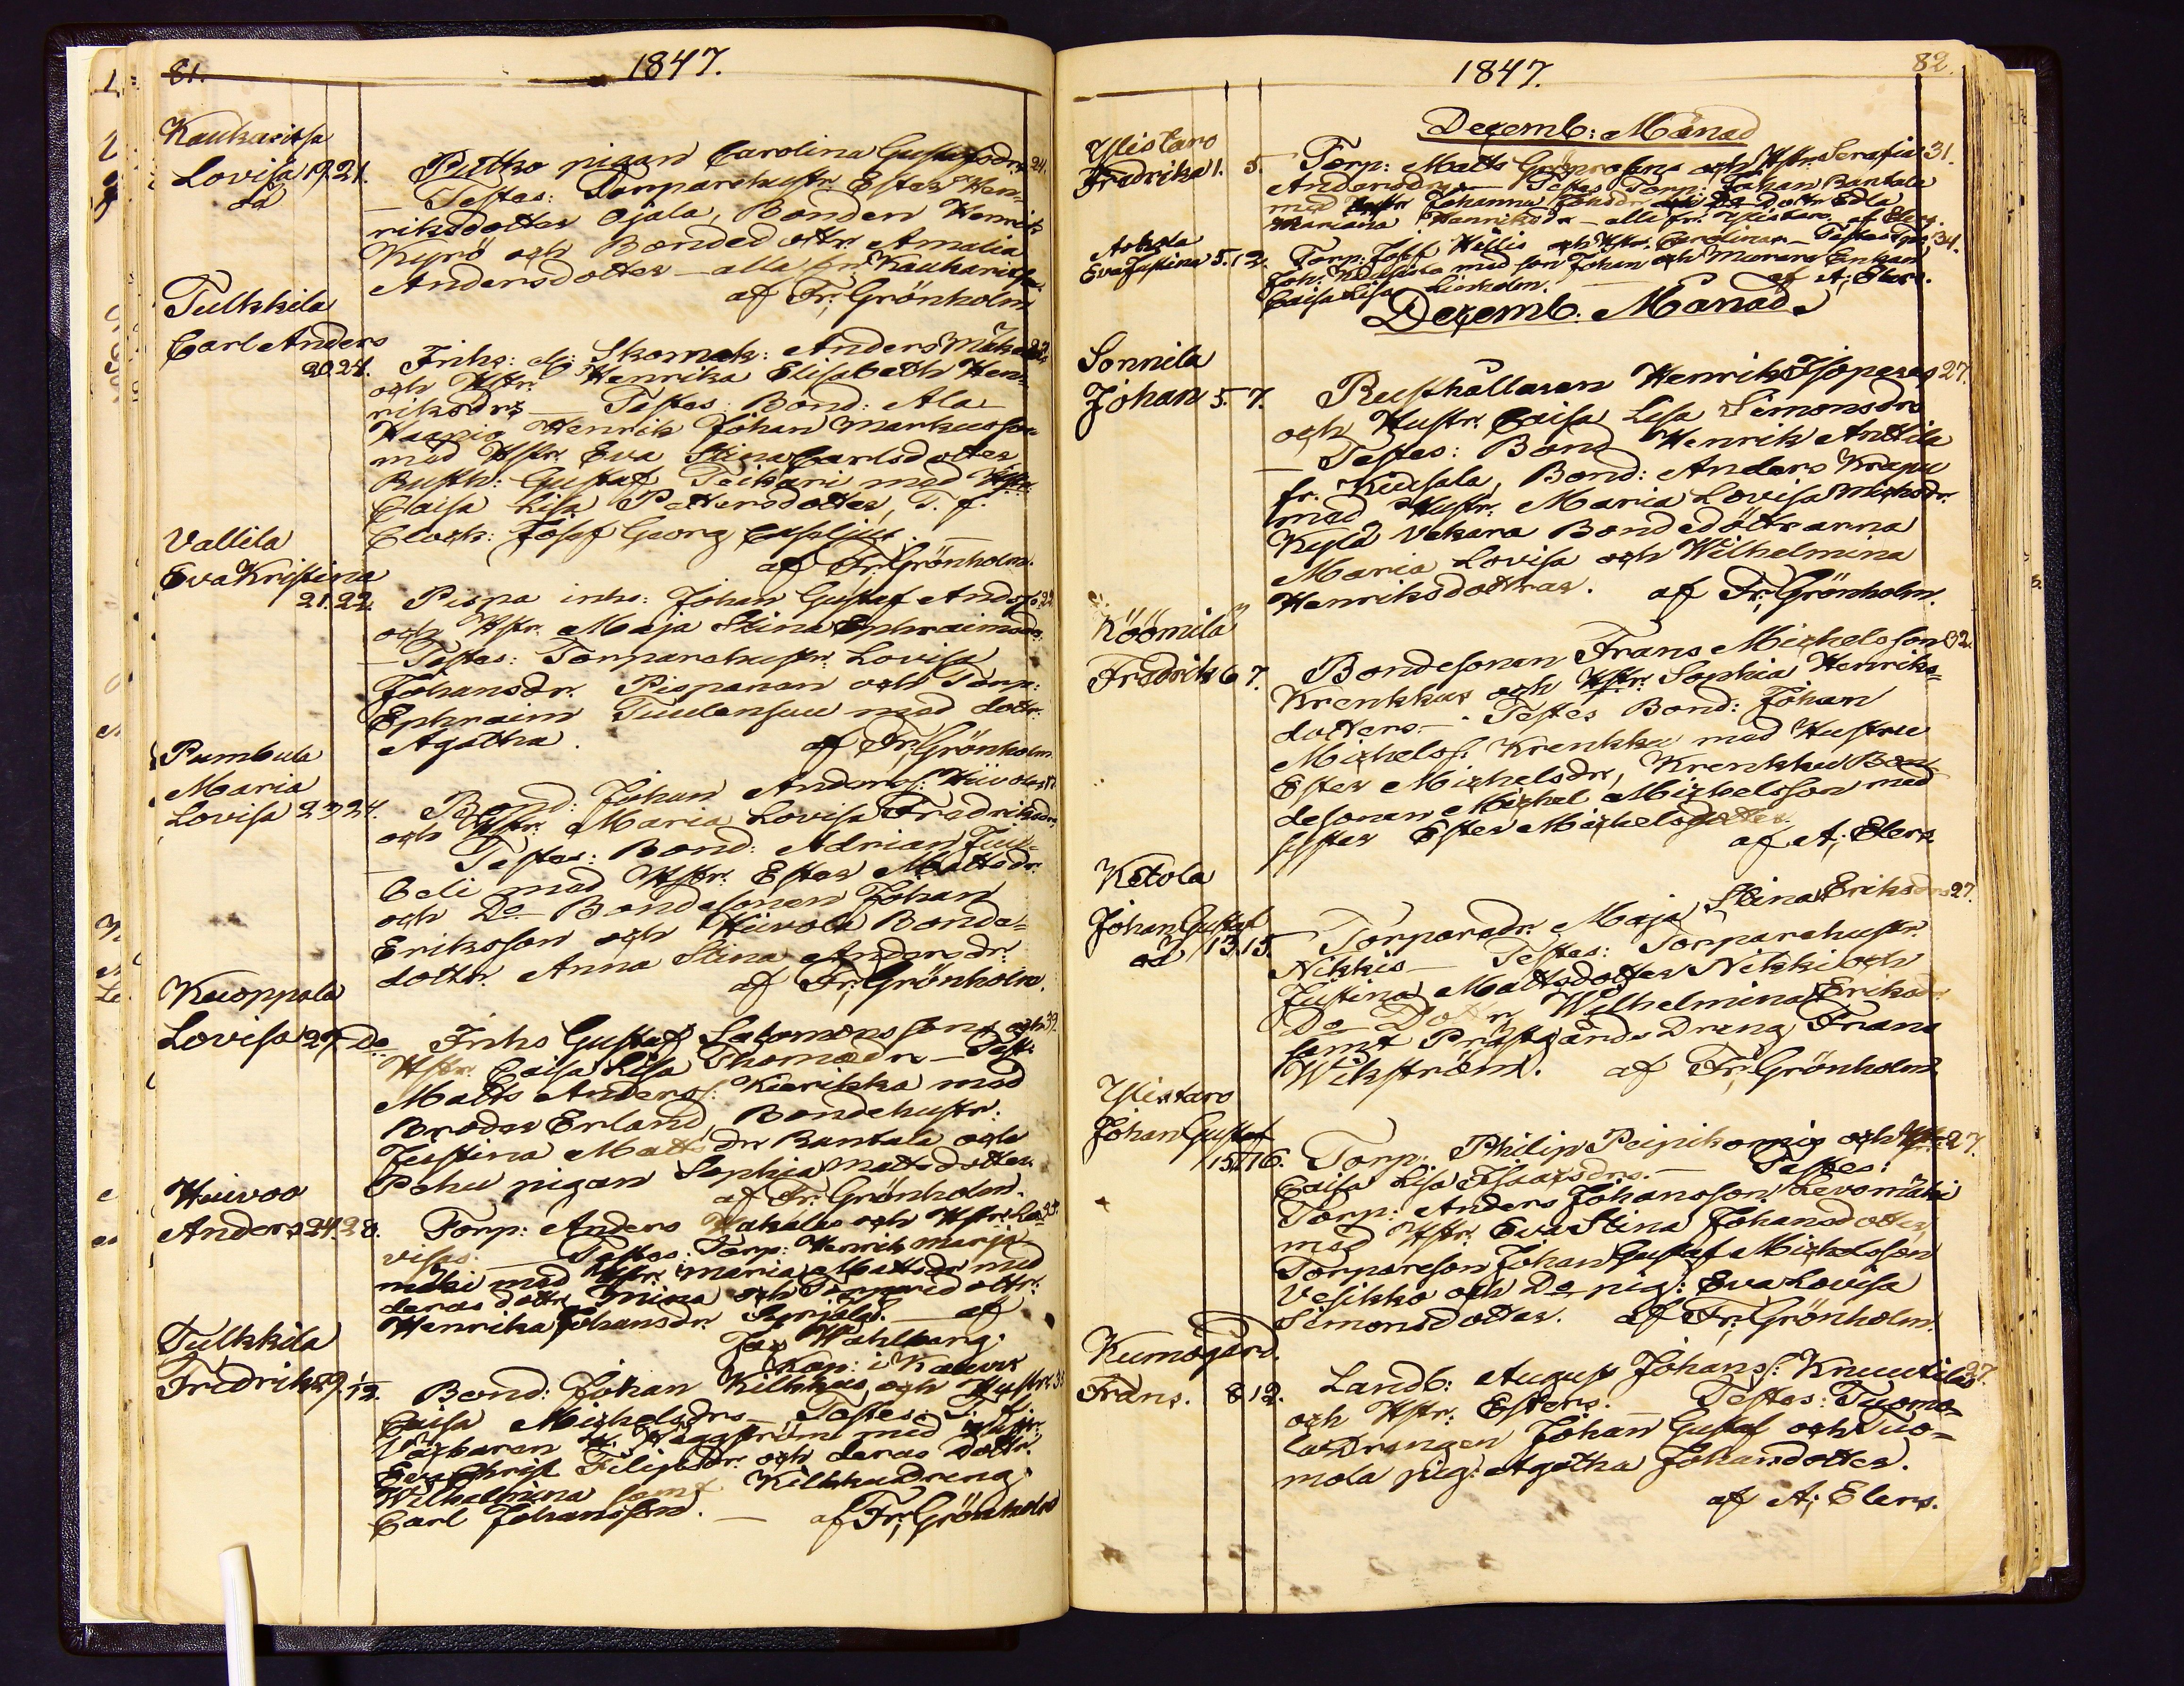 81.
1847.
Kauharitsa
Lovisa 19. 21.
oä
Putko pigan Carolina Gustafsdrs 24.
— Testes: Torparehustr. Ester Hen-
riksdotter Ojala, Bonden Henrik
Kyrö och Bondedottr. Amalia
Andersdotter — alla fr. Kauharitsa
af Fr. Grönholm
Tulkkila
Carl Anders
20. 24.
Inhs: Skomak: Anders
och Hstr. Henrika Elisabeth Hen-
riksdrs — Testes: Bond: Ala
Henrik Johan Markusson
med Hstr. Eva Stina Carlsdotter
Rusth: Gustaf Teikari med Hstr.
Caisa Lisa Pettersdotter, T. f.
Clock: Josef Georg
af Fr. Grönholm.
Vallila
Eva Kristina
21. 22.
Pispa inhs: Johan Gustaf Andss. 22
och Hstr. Maja Stina Ephraimsdrs
— Testes: Torparehustr. Lovisa
Johansdr. Pispanan och Torp:
Ephraim Tuulensuu med dottr.
Agatha. af Fr. Grönholm.
Pumbula
Maria
Lovisa 23. 24.
Bond: Johan Anderss:
och Hstr. Maria Lovisa Fredriksdrs
— Testes: Bond: Adrian Juu-
beli med Hstr. Ester Mattsdr.
och Do Bondesonen Johan
Eriksson och Bonde-
dottr. Anna Stina Andersdr.
af Fr. Grönholm.
Kuoppala
Lovisa 27. Do
Inhs Gustaf Salomonssons och 39.
Hstr. Caisa Lisa Thomasdrs — Test:
Matts Anderss: Kierikka med
Broder Erland, Bondehustr:
Justina Mattsdr Rantala och
Pohu pigan Sophia Mattsdotter.
af Fr. Grönholm.
Huivoo
Anders 24. 28.
Torp: Anders och Hstr. Lo-
visas. — Testes: Torp: Henrik Marja
mäki med Hstr. Maria Mattsdr med
deras dottr Mina och Torparedottr.
Henrika Johansdr. Syrjälä. — af
Jac Wahlberg.
Kap: i Kauvs
Tulkkila
Fredrik 29. 1/12.
Bond: Johan Kilkkas och Hustrs
Caisa Michelsdrs — Testes: T. f.
med Hustr.
Eva Christ Filipsdr. och deras Dottr.
Wilhelmina samt Kilkkudreng
Carl Johansson. — af Fr. Grönholm
1847.
82.
Decemb: Månad
Ylistaro
Fredrika 1. 5.
Torp: Matts och Hstr. Serafias 31.
Andersdrs — Testes Torp: Johan Rantala
med Hustr Johanna Do Dottr Edla
Mariana Henriksdr — alla fr. Ylistaro af Elers.
Arkola
Eva Justina 5. 12.
Torp: Josef Hällis och Hstr. Carolinas — Testes 34.
Joh: med son Johan och Murare Enkan
Caisa Lisa Linholm. — af A. Elers.
Decemb: Månad
Sonnila
Johan 5. 7.
Rusthållaren Henrik 27.
och Hustr. Caisa Lisa Simonsdrs
— Testes: Bond Henrik Anttila
fr. Kiusala, Bond: Anders Krapu
med Hustr. Maria Lovisa Michsdr.
Kylä Vakara Bondedöttrarna
Maria Lovisa och Wilhelmina
Henriksdöttrar. af Fr. Grönholm.
Köömilä
Fredrik 6 7.
Bondesonen Frans Michelsson 32.
Krenkkus och Hstr. Sophia Henriks-
dotters — Testes Bond: Johan
Michelss: Krenkku med Hustru
Ester Michelsdr, Krenkku Bon-
desonen Michel Michelsson med
syster Ester Michelsdotter
af A. Elers.
Ketola
Johan Gustaf
oä 13. 15.
Torparedr. Maja Stina Eriksdrs 27.
Nikkis — Testes: Torparehustr.
Justina Mattsdotter Nikki och
Do Dottr Wilhelmina Eriksdr
samt Prästgårds Dreng Frans
Wikström. af Fr. Grönholm.
Ylistaro
Johan Gustaf
15. 16.
Torp: Philip och Hstr. 27.
Caisa Lisa Isaacsdrs. — Testes:
Torp: Anders Johansson Levomäki
med Hstr. Eva Stina Johansdotter,
Torpareson Johan Gustaf Michelsson
Vesikko och Do pig: Eva Lovisa
Simonsdotter. af Fr. Grönholm.
Kumogård.
Frans. 8 12.
Landb: August Johanss: Knuutilas 27.
och Hstr: Esters. Testes: Tuomo-
la Drengen Johan Gustaf och Tuo-
mola pig: Agatha Johansdotter.
af A. Elers.